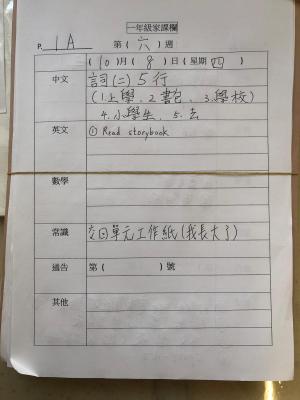 一年級家課欄
P. 1A 第 ( 六 ) 週
( 10 ) 月 ( 8 ) 日 ( 星期 四 )
中文 詞(二) 5行
(1.上學、2.書包、3.學校)
4.小學生、5.去
英文 ① Read storybook
數學
常識 交回單元工作紙(我長大了)
通告 第 ( ) 號
其他